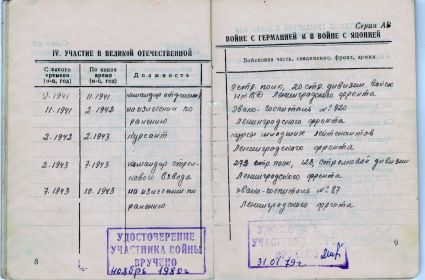 IV. УЧАСТИЕ В ВЕЛИКОЙ ОТЕЧЕСТВЕННОЙ
С какого времени (м-ц, год)
По какое время (м-ц, год)
Должность
9.1941
11.1941
командир отделения
11.1941
2.1942
на излечении по ранению
2.1942
2.1943
курсант
2.1943
7.1943
командир стрелкового взвода
7.1943
10.1943
на излечении по ранению
УДОСТОВЕРЕНИЕ
УЧАСТНИКА ВОЙНЫ
ВРУЧЕНО
ноябрь 1980г.
8
Серия АВ
ВОЙНЕ С ГЕРМАНИЕЙ И В ВОЙНЕ С ЯПОНИЕЙ
Войсковая часть, соединение, фронт, армия
стр. полк, 20 стр. дивизии войск
НКВД Ленинградского фронта
Эвако-госпиталь №920
Ленинградского фронта
курсы младших лейтенантов
Ленинградского фронта
стр. полк, 123 стрелковой дивизии
Ленинградского фронта
эвако-госпиталь №87
Ленинградского фронта
УДОСТОВЕРЕНИЕ
УЧАСТНИКА
31.01.79г.
9